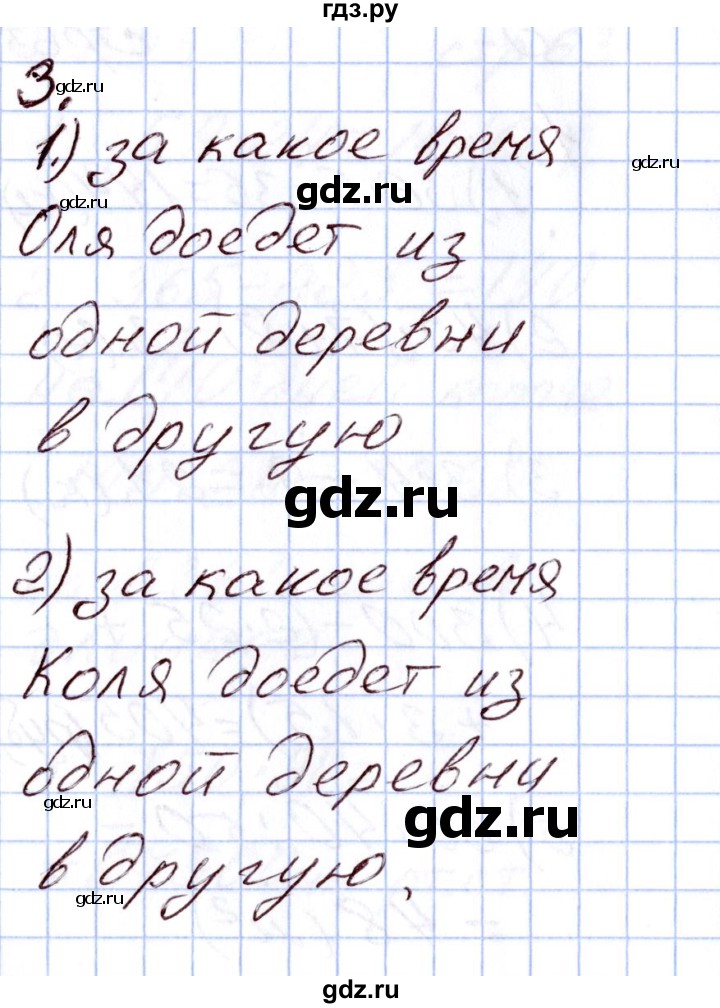 гдз.ру
3.
gdz.ru
1) за какое время
gdz.ru
gdz.ru
gdz.ru
Оля доедет из
одной деревни
в другую
gdz.ru
2) за какое время
Коля доедет из
одной деревни
gdz.ru
gdz.ru
в другую,
gdz.ru
gdz.ru